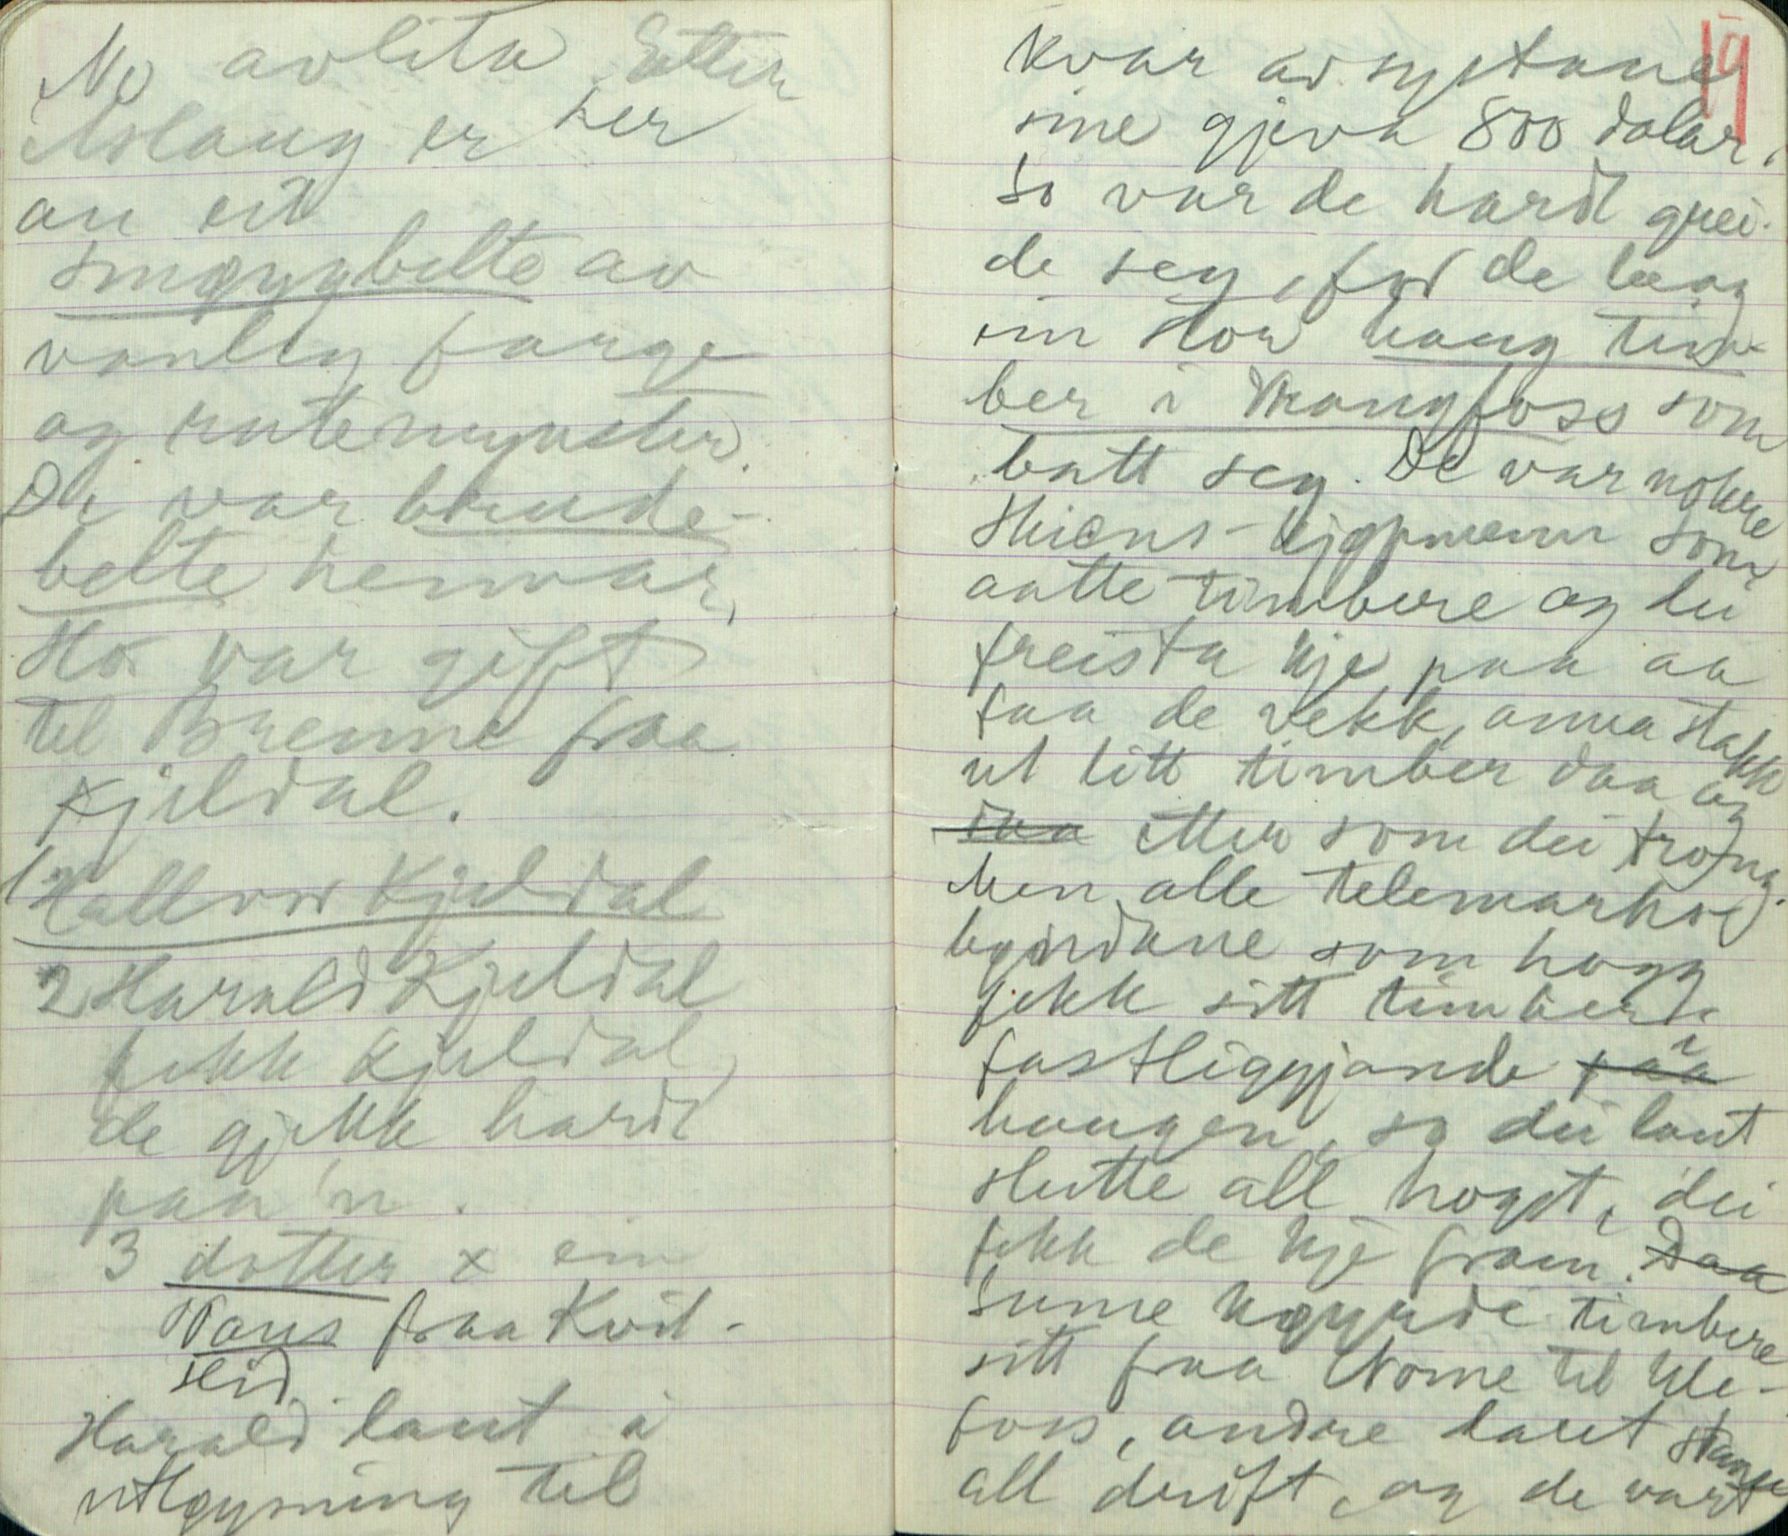 No avlita Etter
Aslaug er her
au eit
smøygbelte av
vanleg farge
og rutemynster.
De var brude-
belte hennar,
Ho var gift
til Brenne fraa
Kjeldal.
1 Hallvor Kjeldal
2 Harald Kjeldal
fekk Kjeldal,
de gjekk hardt
paa 'n.
3 dotter x ein
Naus fraa Kvit-
seid.
Harald laut i
utløysning til
19
kvar av systane
sine gjeva 800 dalar,
so var de hardt grei-
de seg, for de laag
ein stor haug tim-
ber i Vrangfoss som
batt seg. De var nokre
Skiens-kjøpmenn som
aatte timbere og dei
freista kje paa aa
faa de vekk, anna stakk
ut litt timber daa og
daa etter som dei trong.
Men alle telemarkse
bøndane som hogg
fekk sitt timber
fastliggjande paa i
haugen, so dei laut
slutte all hogst, dei
fekk de kje fram. Daa
Sume køyrde timbere
sitt fraa Nome til Ule-
foss, andre laut stanse
all drift, og de vart